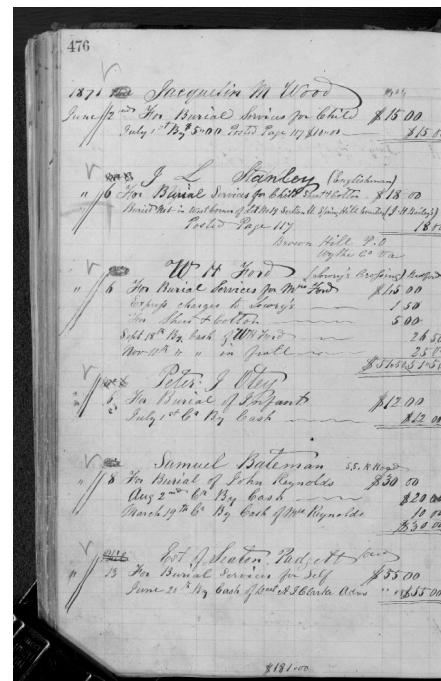 476
1871 Jacquelin M Wood
June 2nd For Burial Services for Child $15 00
July 1st By $5.00 Posted Page 117 $10.00 $15 00
J L Stanley (Englishman)
" 6 For Burial Services for Child Sheet & Cotton $18 00
Buried No 1 in West corner of Lot No Section Spring Hill Cemetery (J H Bailey's)
Posted Page 117 18 00
Brown Hill P.O
Wythe Co Va
W H Ford (Lowry's Crossing) Bedford
" 6 For Burial Services for Mrs Ford $45 00
Express charges to Lowry's 1 50
For Sheet & Cotton 5 00
Sept 18th By Cash of W H Ford 26 50
Nov 11th " " in full 25 00
$51.50 $51.50
Peter J Otey
" 6 For Burial of Infant $12 00
July 1st Cr By Cash $12 00
Samuel Bateman S.S. R Road
" 8 For Burial of John Reynolds $30 00
Aug 2nd Cr By Cash $20 00
March 19th Cr By Cash of Mrs Reynolds 10 00
$30 00
Est of Seaton Padgett
" 13 For Burial Services for Self $55 00
June 21st By Cash of A J Clarke Adm " " $55 00
$181.00